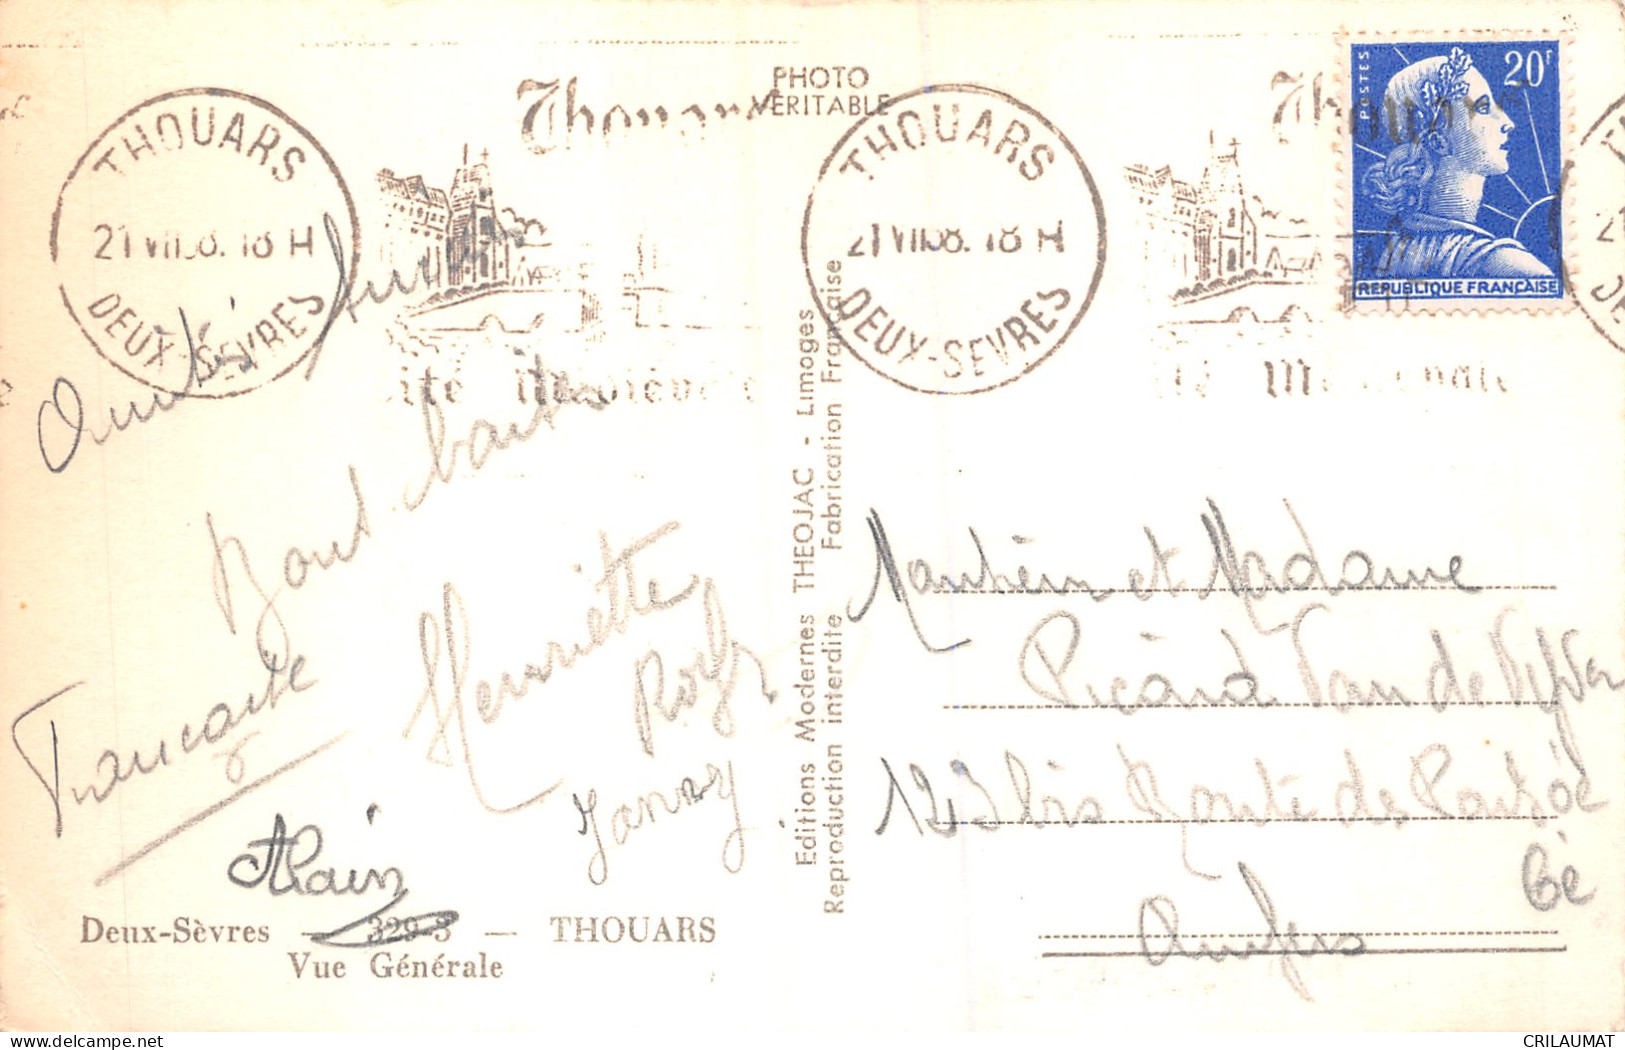 PHOTO
VERITABLE
Thouars
THOUARS
21 VII 58. 18 H
DEUX-SEVRES
Cité Médiévale
Thouars
THOUARS
21 VII 58. 18 H
DEUX-SEVRES
Cité Médiévale
POSTES
20F
REPUBLIQUE FRANÇAISE
Amitiés
Bons baisers
Henriette
Françoise
Alain
Deux-Sèvres — 329-3 — THOUARS
Vue Générale
Editions Modernes THEOJAC - Limoges
Reproduction interdite Fabrication Française
et Madame
Picard Van de
123 bis Route de
Angers
CRILAUMAT